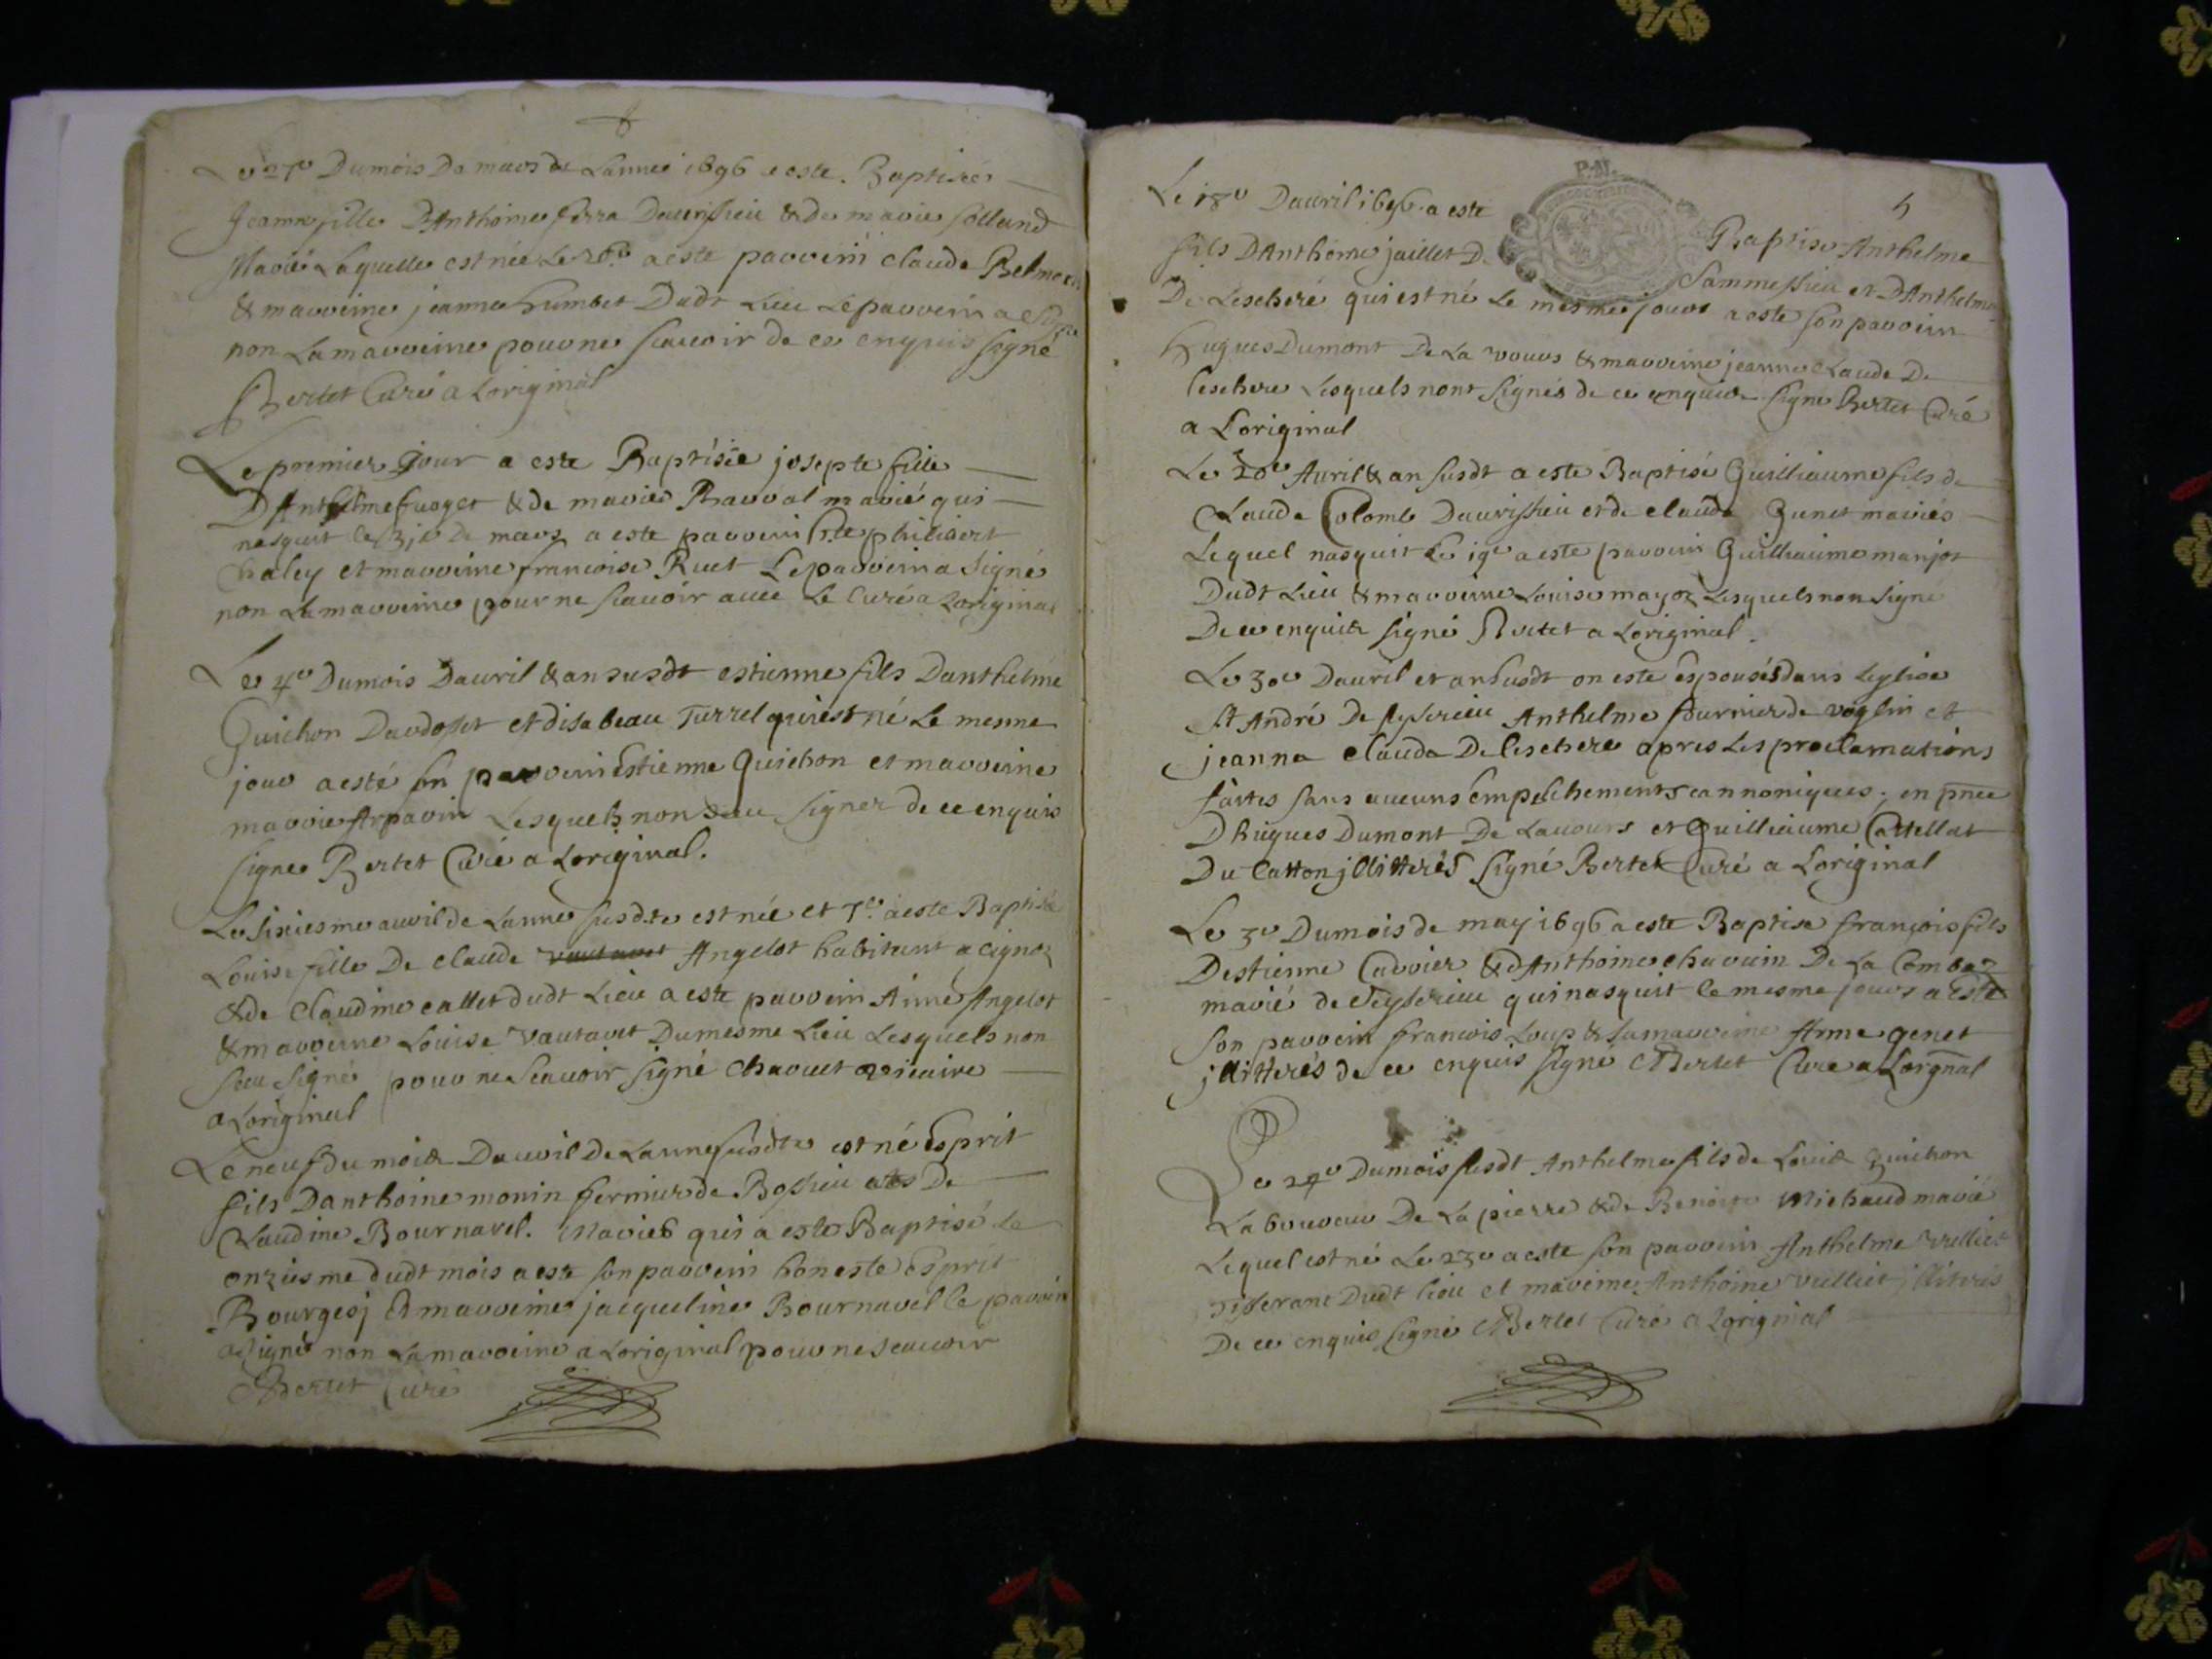 Le 27e Dumois De mars de Lannee 1696 a este. Baptisée
Jeanne fille DAnthoine ferra Daurissieu & de marie solland
Mariés Laquelle est née Le 26e a este parrein claude
& marreine jeanne humbet Dudt Lieu Le parrein a signe
non La marreine pour ne scavoir de ce enquis signé
Bertet Curé a Loriginal
Le premier Jour a este Baptisée josepte fille
DAnthelme fuoget & de marie Ravval marié qui
nasquit le 31e de mars a este parrein philibert
Chaley et marreine francoise Ruet Le parrein a signé
non La marreine pour ne scavoir avec Le Curé a Loriginal
Le 4e Dumois Dauril & an susdt estienne fils Danthelme
Guichon Dardosset et disabeau Turrel qui est né Le mesme
jour a esté son parrein Estienne Guichon et marreine
marie Arpavin Lesquels non sceu signer de ce enquis
signe Bertet Curé a Loriginal.
Le sixiesme auril de Lanne susdte est née et 7e a este Baptisée
Louise fille De claude Angelot habitant a Cignoz
& de Claudine callet dudt Lieu a este parrein Aimé Angelot
& marreine Louise vautaret Dumesme Lieu Lesquels non
sceu signé pour ne Scavoir signé Charvet vicaire
a Loriginal
Le neuf du mois Dauril De Lanne susdte est né Esprit
fils Danthoine monin fermier de Bossieu De
Claudine Bournavel. Mariés qui a este Baptisé Le
onziesme dudt mois a este son parrein honeste Esprit
Bourgesj & marreine jacqueline Bournavel le parrein
a signé non La marreine a Loriginal pour ne scavoir
Bertet Curé
P.N.
5
Le 18e Dauril 1696 a este Baptisé Anthelme
fils DAnthoine jaillet D. Sammessieu et DAnthelme
De Lescheré qui est né Le mesme jour a este son parrein
Hugues Dumont De La vours & marreine jeanne Claude De
leschere Lesquels nont signés de ce enquis signe Bertet Curé
a Loriginal
Le 20e Auril & an susdt a este Baptisé Guilliaume fils de
Claude Colomb Daurissieu et de claude Gunet mariés
Lequel nasquit Le 19e a este parrein Guilliaume marjot
Dudt Lieu & marreine Louise mayoz Lesquels non signe
De ce enquis signé Bertet a Loriginal.
Le 30e Dauril et an susdt on este espousés dans Leglise
St André De seyserieu Anthelme fournier de voglin et
jeanne claude De leschere apres Les proclamations
faites sans aucuns empeschements cannoniques; en pnce
DHugues Dumont De Lavours et Guilliaume Castellat
Du Catton jllitterés signé Bertet Curé a Loriginal
Le 3e Dumois de may 1696 a este Baptise françois fils
Destienne Cavvier & dAnthoine chavuin De La Combaz
marié de Ceyserieu qui nasquit le mesme jour a Este
son parrein francois Loup & sa marreine Anne genet
jllitterés de ce enquis signe Bertet Cure a Lorgnal
Le 24e Dumois susdt Anthelme fils de Louis Guichon
Laboureur De La pierre & de Benoite Michaud marié
Lequel est né Le 23e a este son parrein Anthelme vulliet
Tisserant Dudt lieu et mareine Anthoine vulliet jllitris
De ce enquis signé Bertet Curé a Loriginal